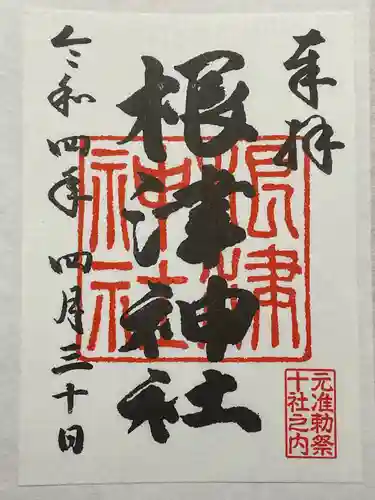 奉拝
根津神社
根津神社
元准勅祭
十社之内
令和四年 四月三十日